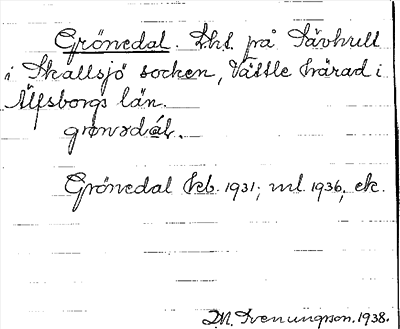 Grönedal. Lht. på Sävhult
i Skallsjö socken, Vättle härad i
Älfsborgs län.
grönədáb.
Grönedal hfb. 1931; ml. 1936, ek.
M. Svenungson. 1938.